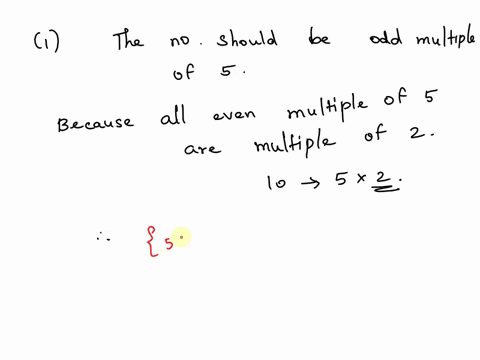 (1) The no. should be odd multiple
of 5.
Because all even multiple of 5
are multiple of 2.
10 → 5 × 2.
∴ { 5